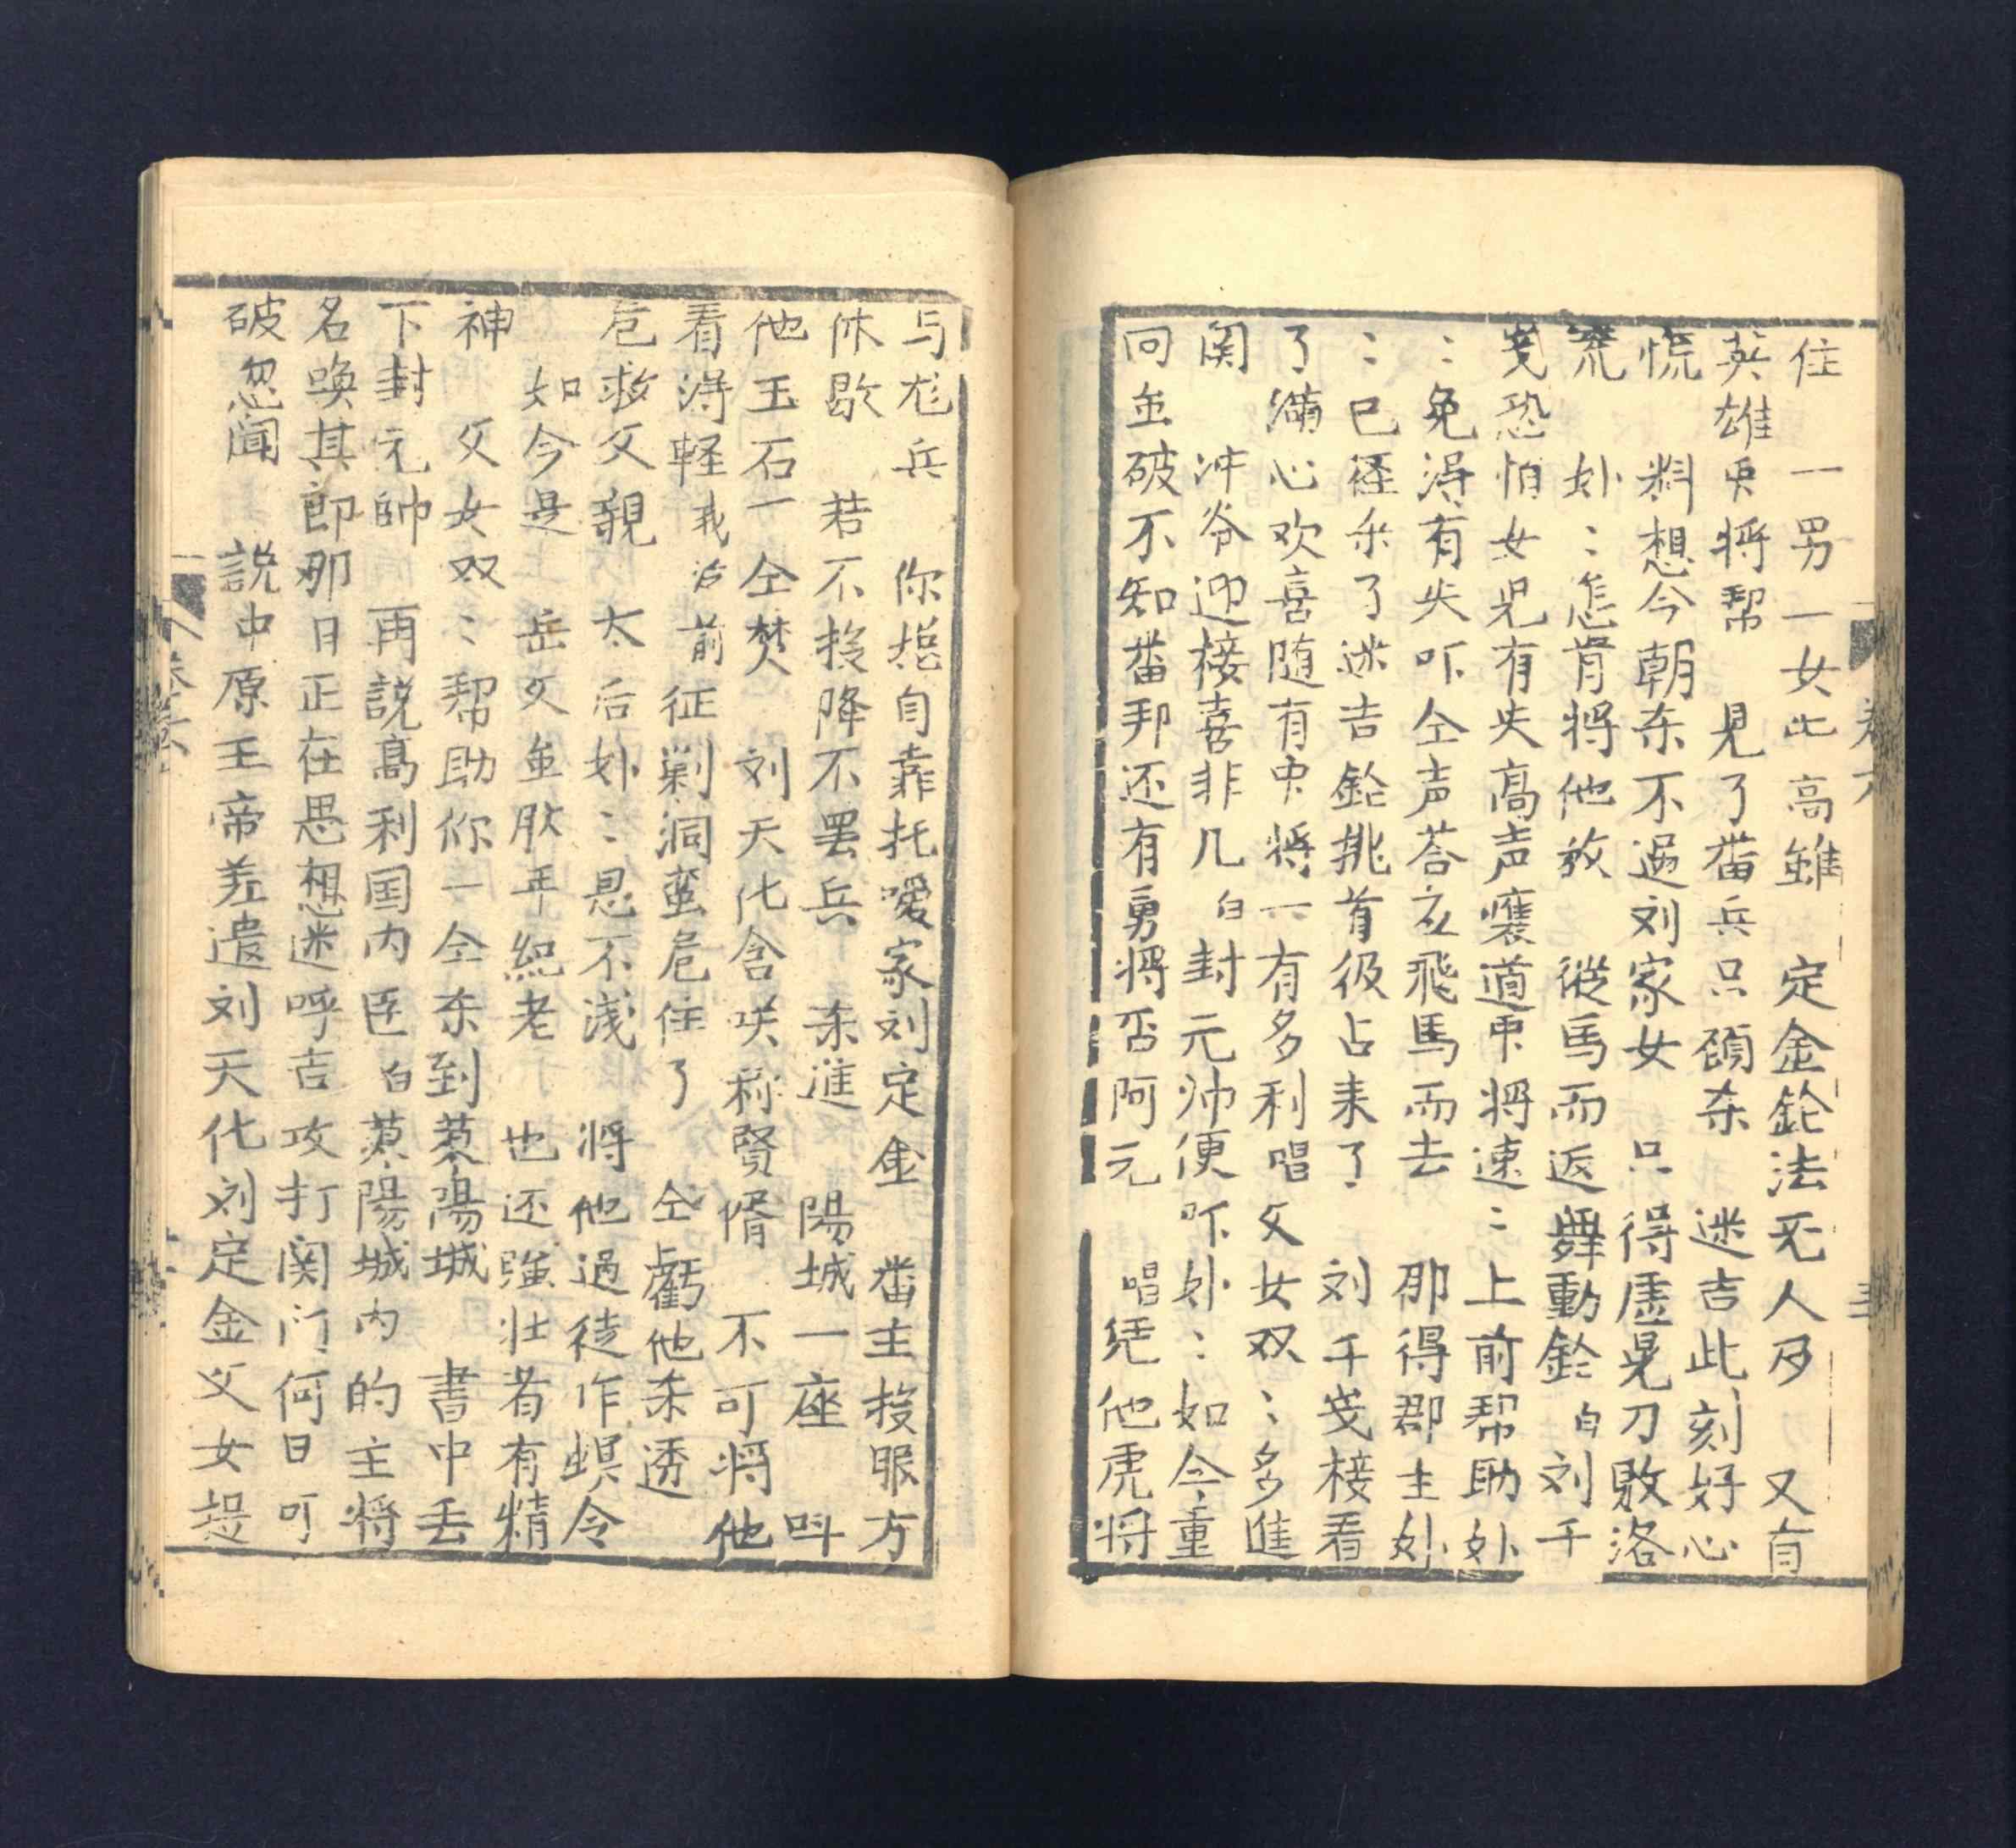 住 一男一女比高雖 定金鈴法无人及 又有
英雄中将帮 見了畨兵只顧杀 迷吉此刻好心
慌 料想今朝杀不過刘家女 只得虚晃刀敗洛
荒 妙〻怎肯将他放 從馬而返舞動鈴 白刘千
戋恐怕女児有失高声襄道中将速〻上前帮助妙
〻免淂有失吓仝声荅应飛馬而去 那得郡主妙
〻已經杀了迷吉鈴挑首級占来了 刘千戋接看
了滿心欢喜随有中将一有多利唱父女双〻多進
関 冲爷迎接喜非凡白封元帅便吓妙〻如今重
回並破不知畨邦还有勇将否阿元 唱凭他虎将
与彪兵 你揔自靠托噯家刘定金 畨主投服方
休歇 若不投降不罢兵 杀進 陽城一座 呌
他玉石一仝焚 刘天化含咲称賢偦 不可将他
看淂軽 我 前征剿洞蛮危住了 仝虧他杀透
危救父親 太后妙〻恩不浅 将他過徒作螟令
如今是 岳父並肷年紀老 也还強壮者有精
神 父女双〻帮助你一仝杀到蒽陽城 書中丢
下封元帥 再説高利国内臣白蒽陽城内的主将
名喚其郎那日正在思想迷呼吉攻打関门何日可
破忽闻 説中原王帝差遣刘天化刘定金父女提
卷六